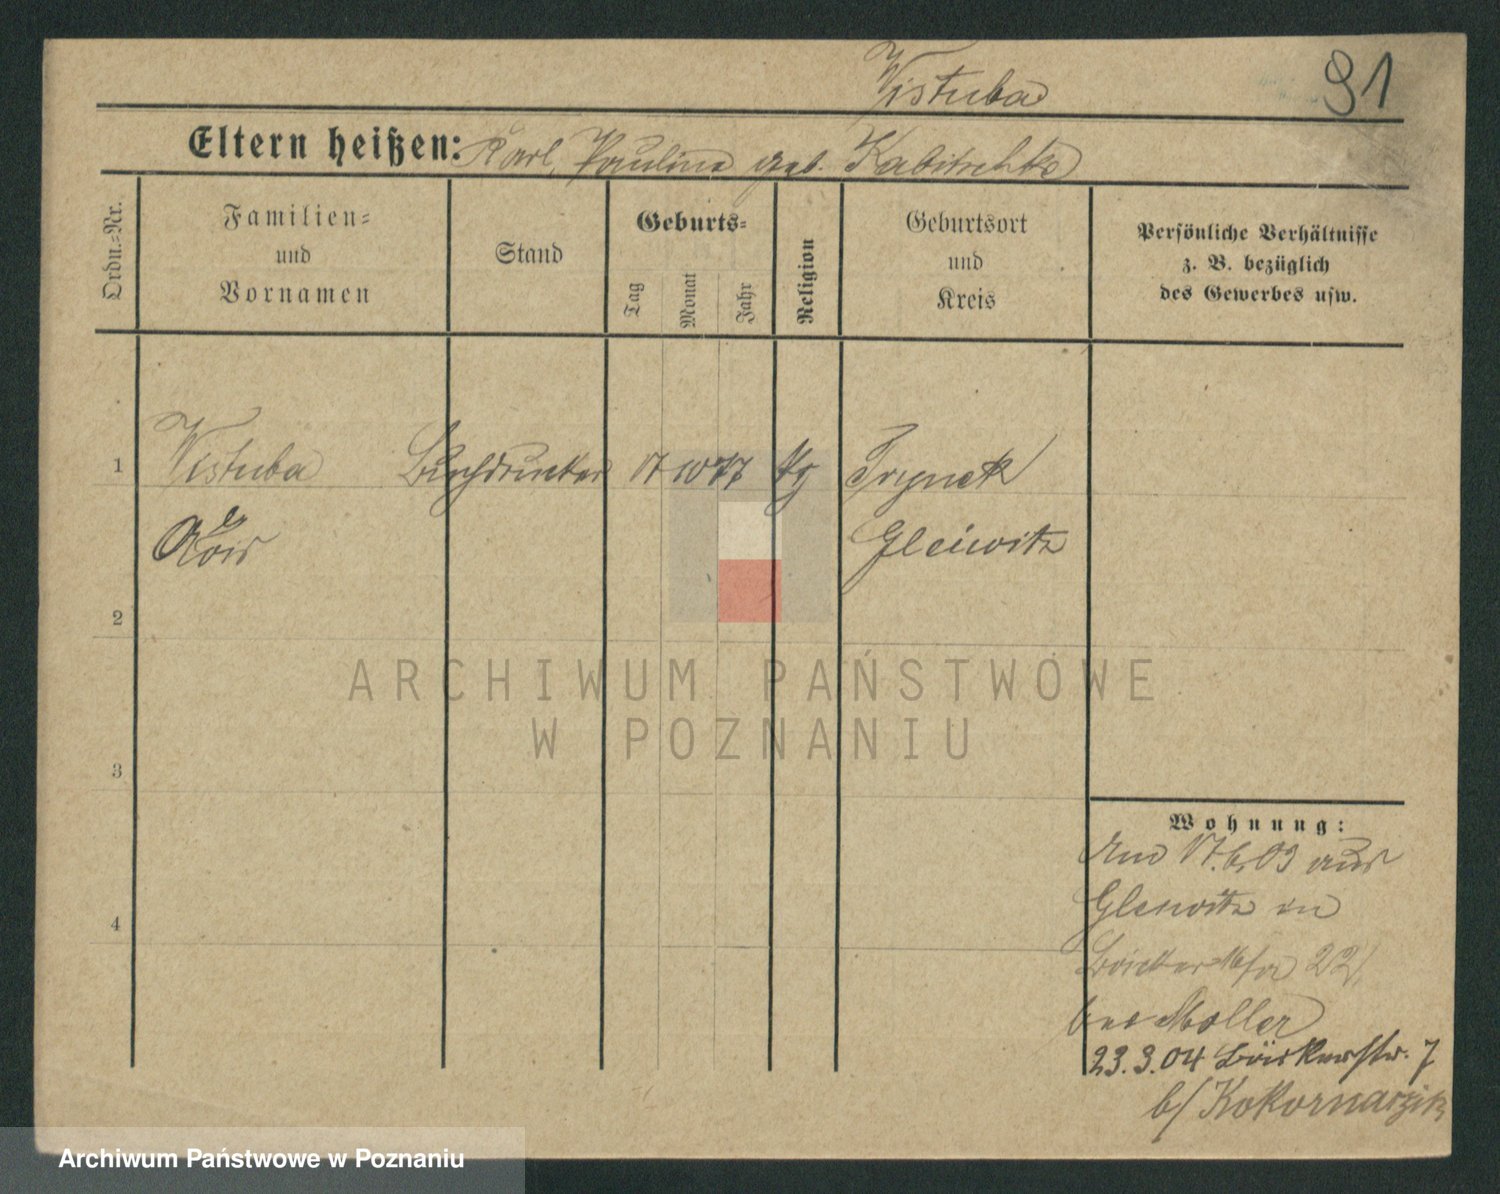 Wistuba
91
Eltern heißen: Karl, Pauline geb. Kabitschke
Ordn.=Nr.
Familien=
und
Vornamen
Stand
Geburts=
Tag
Monat
Jahr
Religion
Geburtsort
und
Kreis
Persönliche Verhältnisse
z. B. bezüglich
des Gewerbes usw.
1
Wistuba Buchdrucker 17 10 77 kg Trynek
Gleiwitz
2
3
4
ARCHIWUM PAŃSTWOWE
W POZNANIU
Wohnung:
Am 17.6.03 aus
Gleiwitz in
22
bei Moller
23.3.04 Bäckerstr. 7
b/
Archiwum Państwowe w Poznaniu